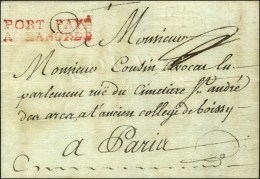 PORT PAYÉ
Monsieur
Monsieur Cousin avocat en
parlement rue du Cimetiere St. andré
des arcs a l'ancien college de boissy
a Paris